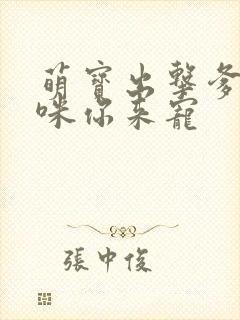 萌寶出擊爹
咪你來寵
張中俊